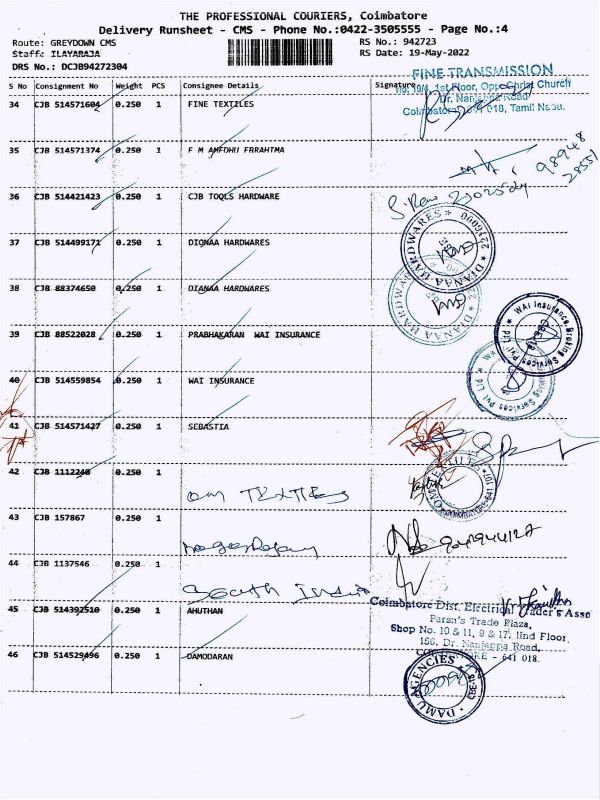 THE PROFESSIONAL COURIERS, Coimbatore
Delivery Runsheet - CMS - Phone No.:0422-3505555 - Page No.:4
Route: GREYDOWN CMS
RS No.: 942723
Staff: ILAYARAJA
RS Date: 19-May-2022
DRS No.: DCJB94272304
S No Consignment No Weight PCS Consignee Details Signature
FINE TRANSMISSION
No. 19/4, 1st Floor, Opp. Christ Church
Dr. Nanjappa Road
Coimbatore - 641 018, Tamil Nadu.
34 CJB 514571604 0.250 1 FINE TEXTILES
35 CJB 514571374 0.250 1 F M AMEDHU EBRAHTMA
98948
28551
36 CJB 514421423 0.250 1 CJB TOOLS HARDWARE
37 CJB 514499171 0.250 1 DIONAA HARDWARES
DIANAA HARDWARES
38 CJB 88374650 0.250 1 DIANAA HARDWARES
DIANAA HARDWARES
39 CJB 88522028 0.250 1 PRABHAKARAN WAI INSURANCE
WAI Insurance Broking Services Pvt Ltd
40 CJB 514559854 0.250 1 WAI INSURANCE
41 CJB 514571427 0.250 1 SEBASTIA
42 CJB 1112240 0.250 1
OM TEXTILES
43 CJB 157867 0.250 1
Nagarajan
44 CJB 1137546 0.250 1
South India
45 CJB 514392510 0.250 1 AHUTHAN
Coimbatore Dist. Electrical Trader's Assn
Parsn's Trade Plaza,
Shop No. 10 & 11, 9 & 17, IInd Floor,
156, Dr. Nanjappa Road,
COIMBATORE - 641 018.
46 CJB 514529496 0.250 1 DAMODARAN
DAMU AGENCIES
CBE-18